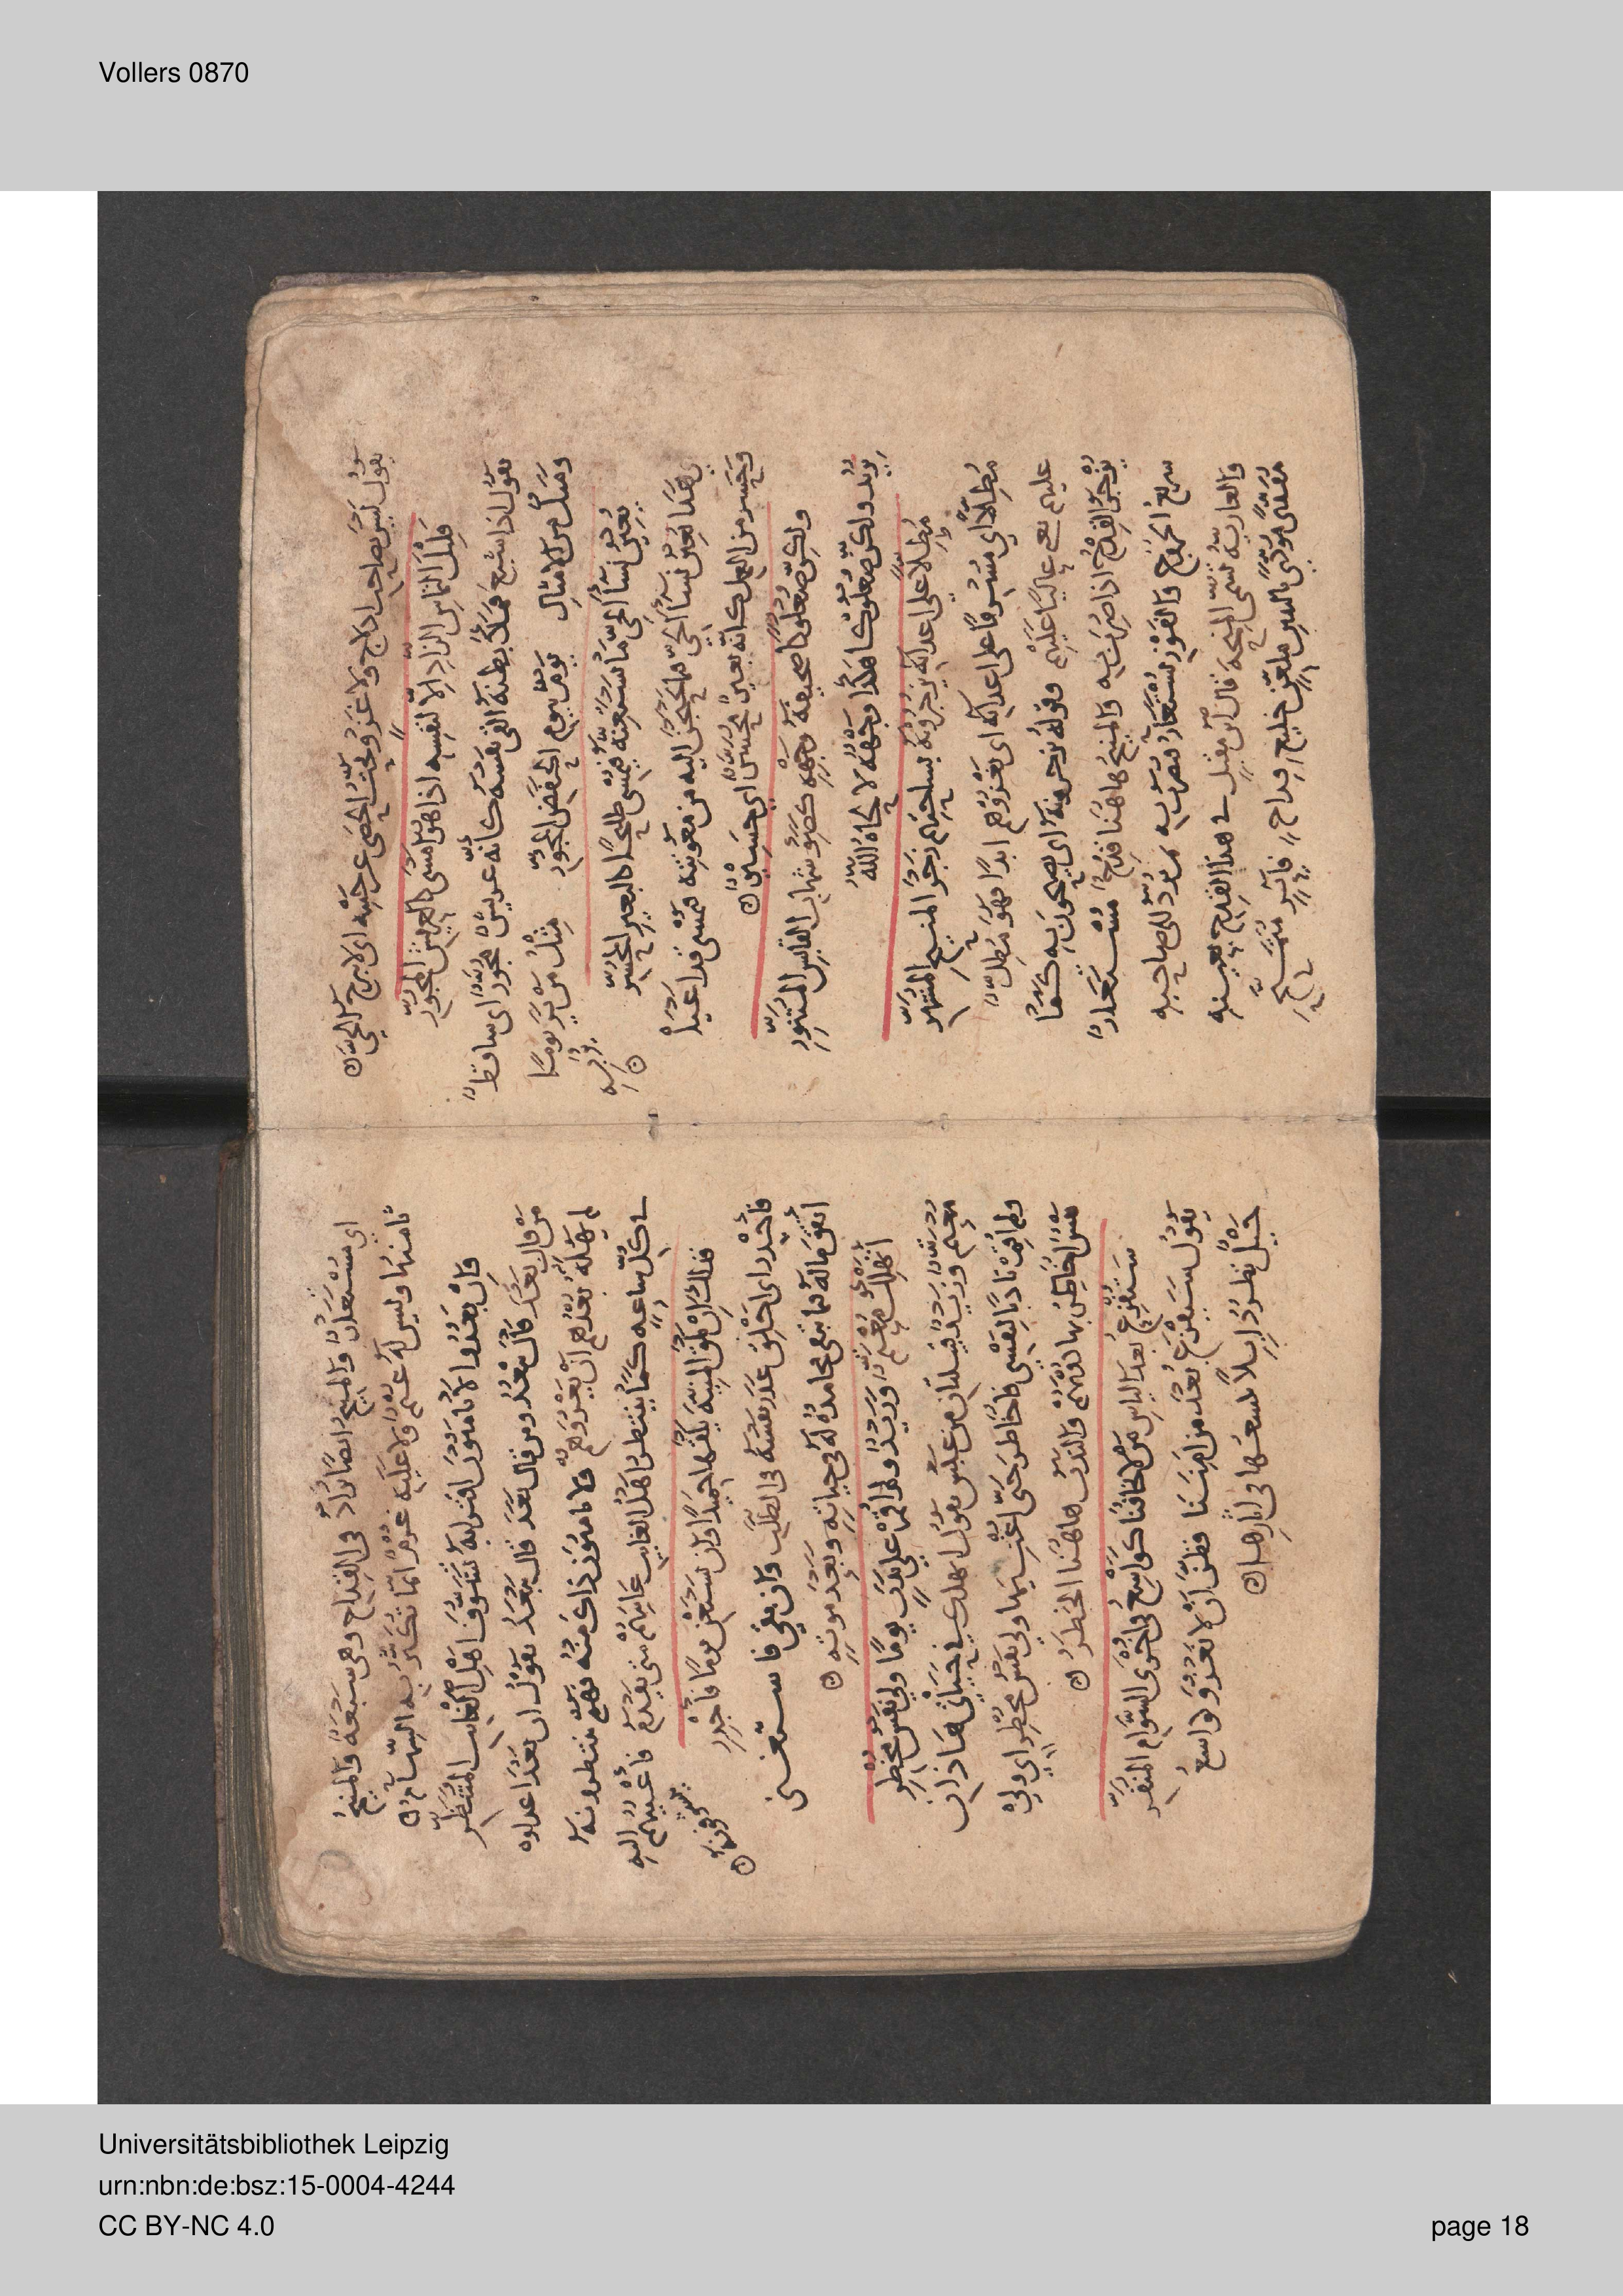 Vollers 0870
يقول ليس بصاحب ادلاج ولا غزو يحث الحصى عن جنبه اى لا يبرح الحى
قليل التماس الزاد الا لنفسه اذا هو امسى كالعريش المجور
يقول اذا شبع فملأ بطنه القى نفسه كانه عريش مجور اى ساقط
ومثل من الامثال يوم بيوم الحفض المجور مثل من ير يوما ير به
يعين نسآ الحى ما يستعنه فيمسى طليحا كالبعير المحسر
هذا يعين نسآ الحى ما يحتجن اليه من معونته فيمسى قد اعيا
وحسر من العمل كانه بعير محسر اى حسير
ولكن صعلوكا صحيفة وجهه كضوء شهاب القابس المتنور
يريد ولكن صعلوكا هكذا وجهه لا لحاه الله
مطلا على اعدائه يزجرونه بساحتهم زجر المنيح المشهر
مطلا اى مشرفا على اعدائه اى يغزوهم ابدا فهو مطل
عليهم يعنى عاليا عليهم وقوله يزجرونه اى يصيحون به كما
يزجر القدح اذا ضرب به والمنيح هاهنا قدح مستعار
سريع الخروج والفوز يستعار فيضرب به ثم يرد الى صاحبه
والعارية تسمى المنحة قال ابن مقبل فى هذا القدح بعينه
مفدى مؤدى باليدين ملعن خليع قداح فائز متمنح
اى مستعار والمنيح ايضا يزاد فى القداح وهى سبعة والمنيح
ثامنها وليس له غنم ولا عليه غرم انما تكثر به السهام
وان بعدوا لا يامنون اقترابه تشوف اهل الغائب المتنظر
من قال بعد قال يبعد ومن قال بعد قال يبعد يقول ان بعد اعداوه
لم يهله بعدهم ان يغزوهم ولا يامنون ذاك منه فهم ينتظرونه
فى كل ساعه كما ينتظر اهل الغايب غايبهم متى يقدم فاعينهم اليه متشوفة
فذلك ان يلق المنية يلقها حميدا وان يستغن يوما فاجدر
فاجدر اى اخلق عذر نفسه فى الطلب وان بقى فاستغنى
انفق ماله فما تبقى محامده له فى حياته وبعد موته
ايهلك معتم وزيد ولم اقم على ندب يوما ولى نفس مخطر
معتم وزيد قبيلتان من عبس يقول ايهلك فى حياتى هاذان
ولم اقم نادبا لنفسى فاخاطر حتى اغنيهما ولى نفس مخطر اى ولى
نفس اخاطر بها دونهم والندب هاهنا الخطر
ستفزع بعد الياس من لا يخافنا كواسع فى اخرى السوام المنفر
يقول ستفزع بعد من امننا فظن ان لا نغزو وكواسع
خيل تطرد ابلا تكسعها فى اثارها
Universitätsbibliothek Leipzig
urn:nbn:de:bsz:15-0004-4244
CC BY-NC 4.0
page 18